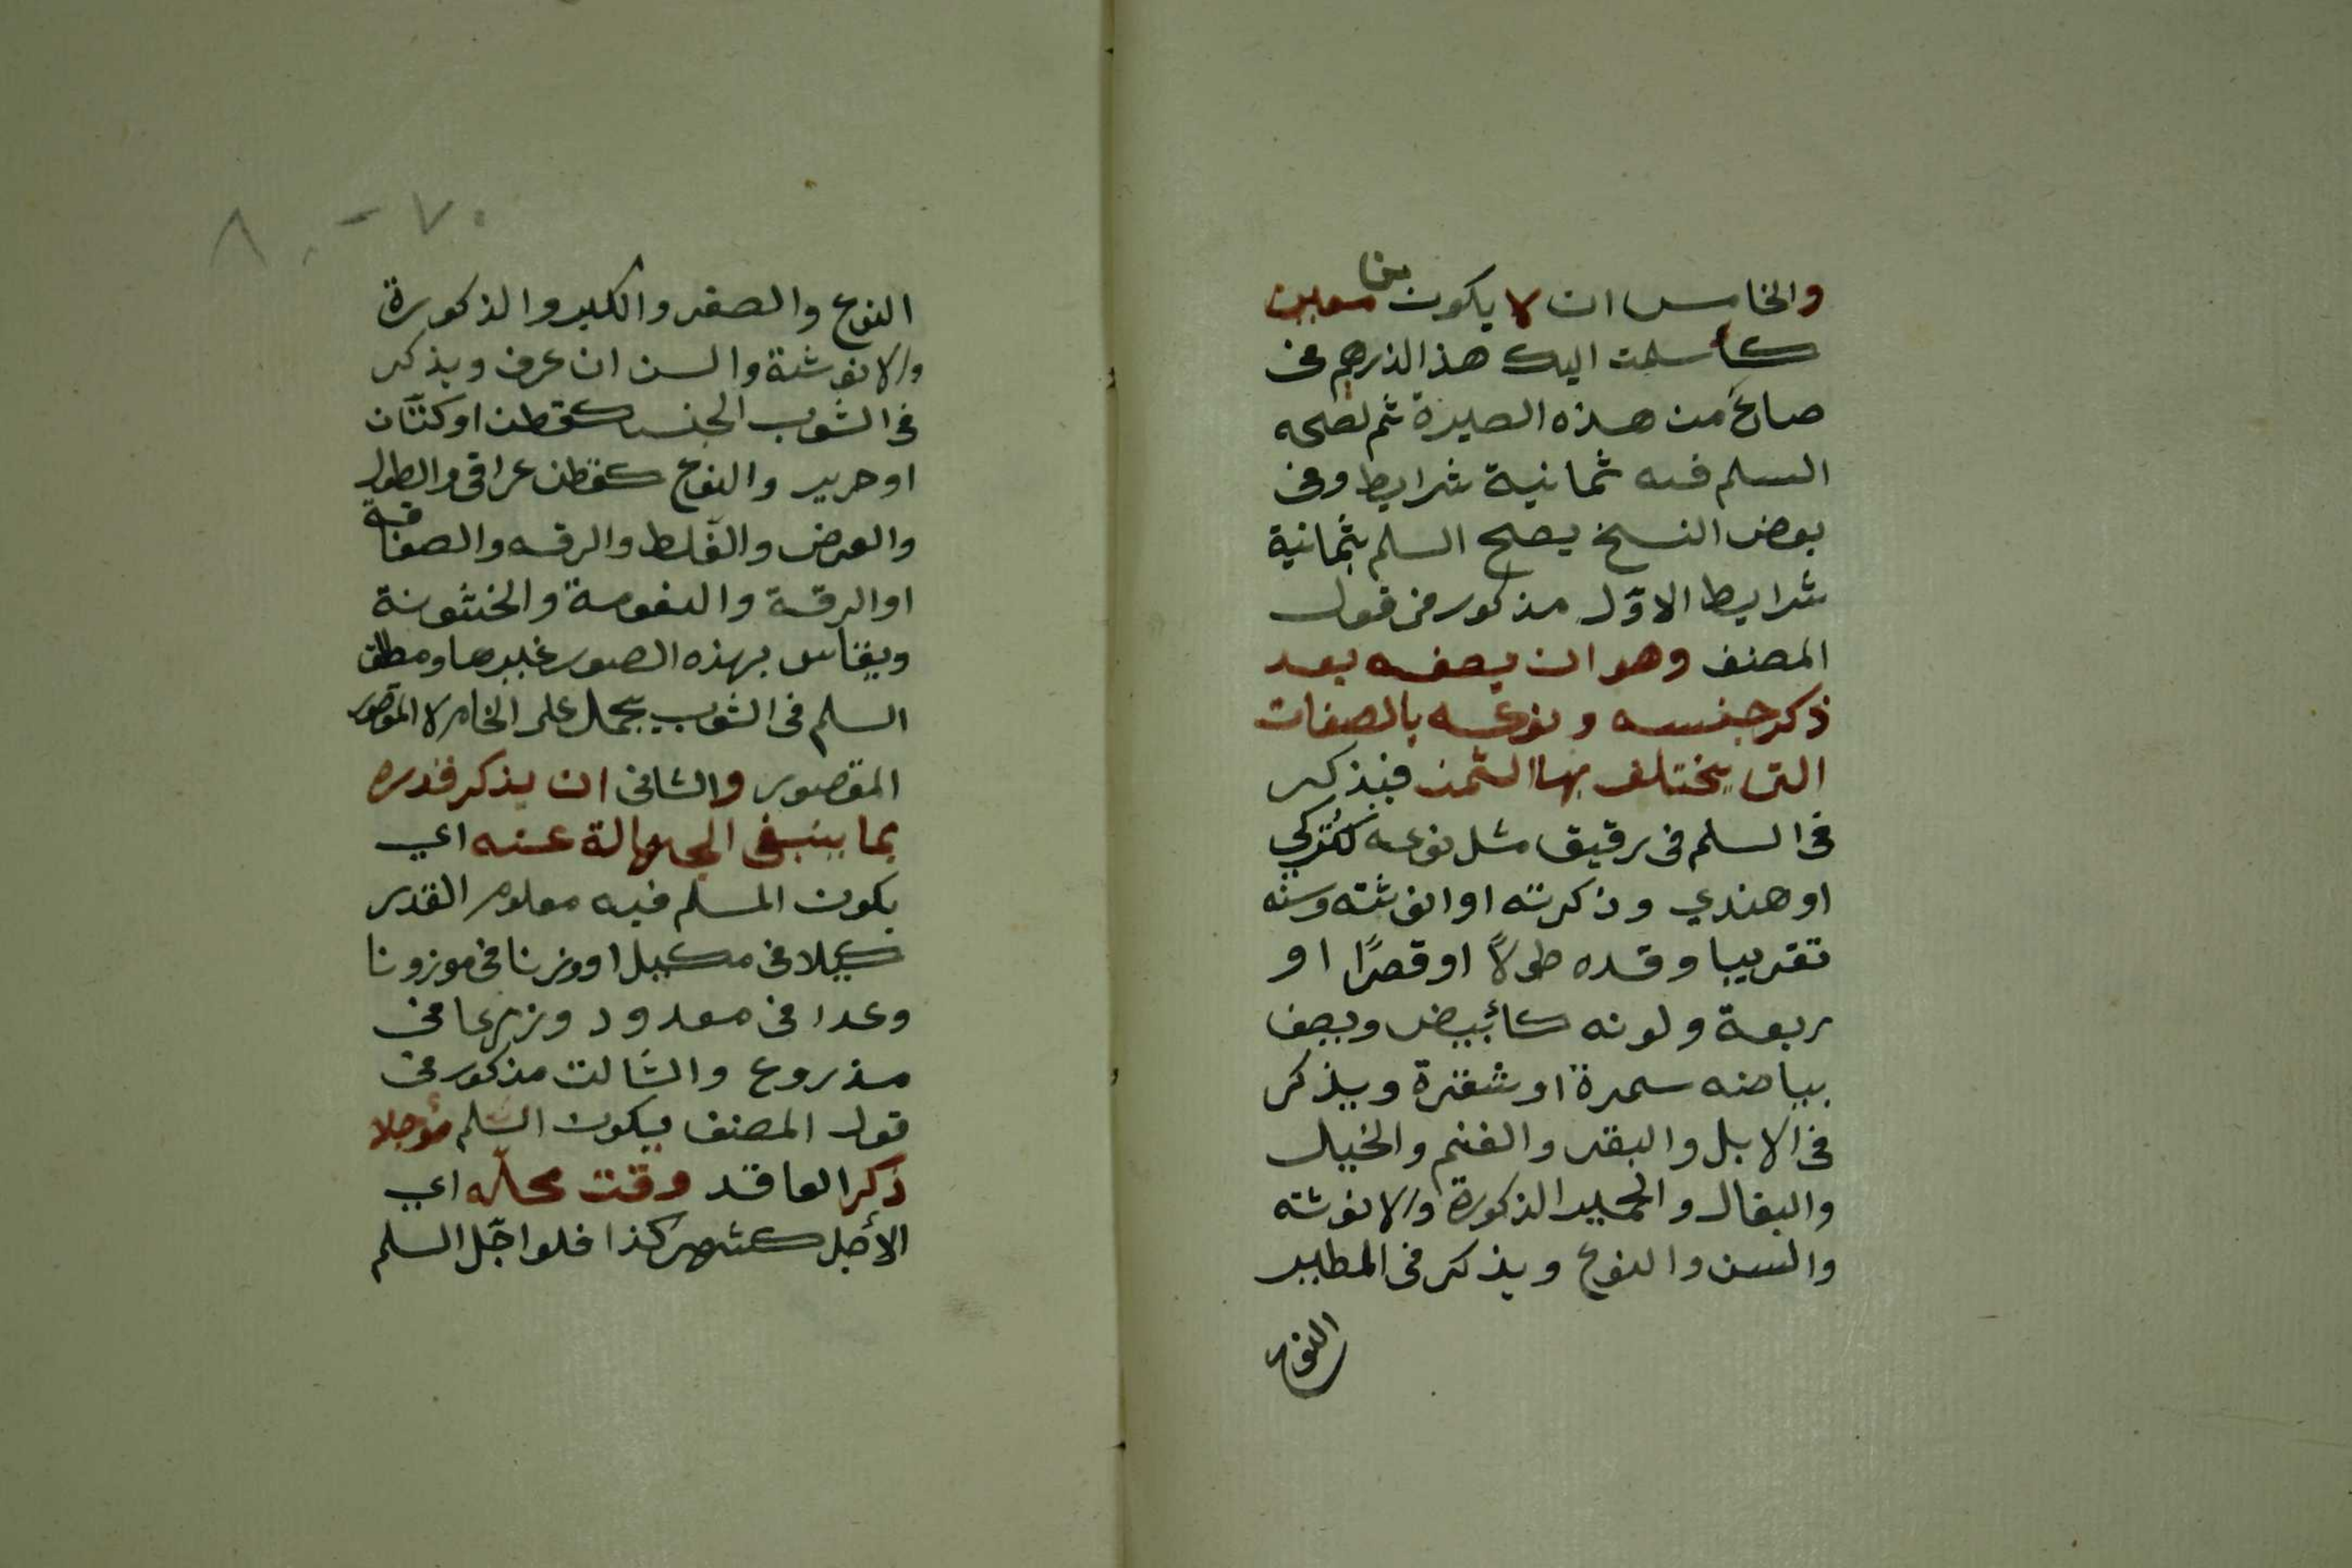 والخامس ان لا يكون من معين
كأسلمت اليك هذا الدرهم فى
صاعٍ من هذه الصبرة ثم لصحه
السلم فيه ثمانية شرايط وفى
بعض النسخ يصح السلم بثمانية
شرايط الاوّل مذكور فى قول
المصنف وهو ان يصفه بعد
ذكر جنسه ونوعه بالصفات
التى يختلف بها الثمن فيذكر
فى السلم فى رقيق مثل نوعه كتركي
او هندي وذكرته او انوثته وسنه
تقريبا وقده طولاً او قصرًا او
ربعة ولونه كأبيض ويصف
بياضه سمرة او شقرة ويذكر
فى الابل والبقر والغنم والخيل
والبغال والحمير الذكورة والانوثه
والسن والنوع ويذكر فى المطير
النوع
٨٠ - ٧٠
النوع والصغر والكبر والذكورة
والانوثة والسن ان عرف ويذكر
فى الثوب الجنس كقطن او كتّان
او حرير والنوع كقطن عراقى والطول
والعرض والغلط والرقه والصفاقة
او الرقة والنعومة والخشونة
ويقاس بهذه الصور غيرها ومطلق
السلم فى الثوب يحمل على الخام لا
المقصور والثانى ان يذكر قدره
بما ينبغى الجهالة عنه اي
يكون المسلم فيه معلوم القدر
كيلا فى مكيل او وزنا فى موزونا
وعدا فى معدود وزرعا فى
مذروع والثالث مذكور فى
قول المصنف يكون السّلم مؤجلا
ذكر العاقد وقت محلّه اي
الأجل كشهر كذا فلو اجّل السلم